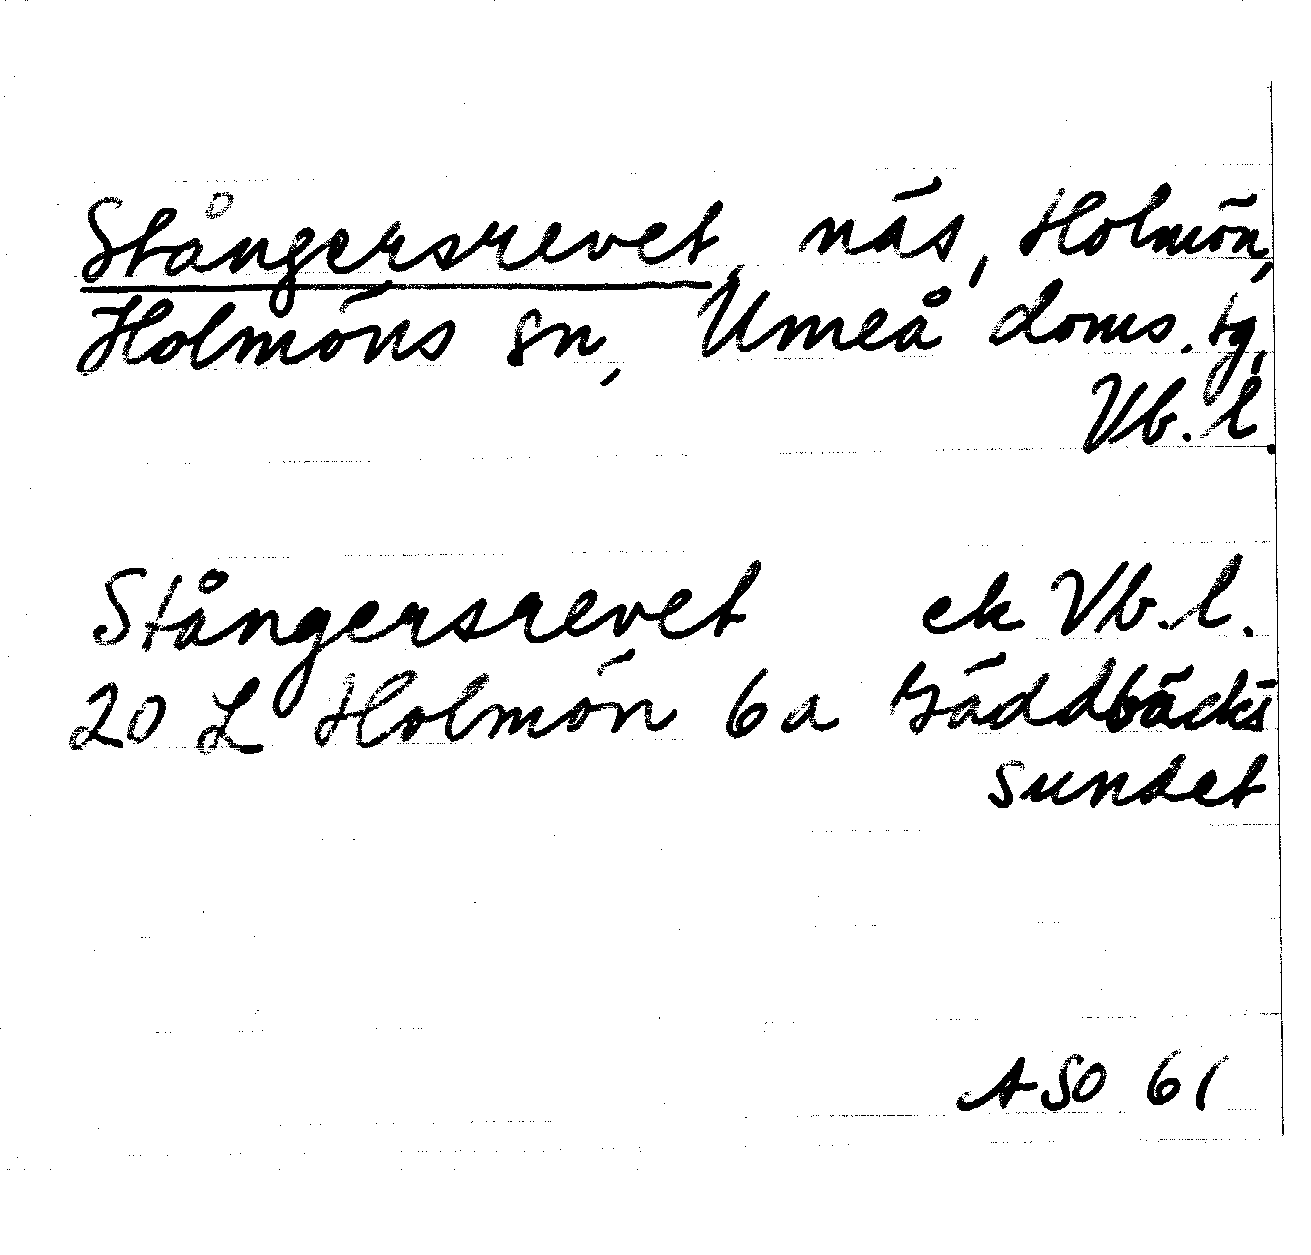 Stångersrevet, näs, Holmön,
Holmöns sn, Umeå doms. tg,
Vb. l.
Stångersrevet ek Vb. l.
20 L Holmön 6a Gäddbäcks
sundet
ASO 61